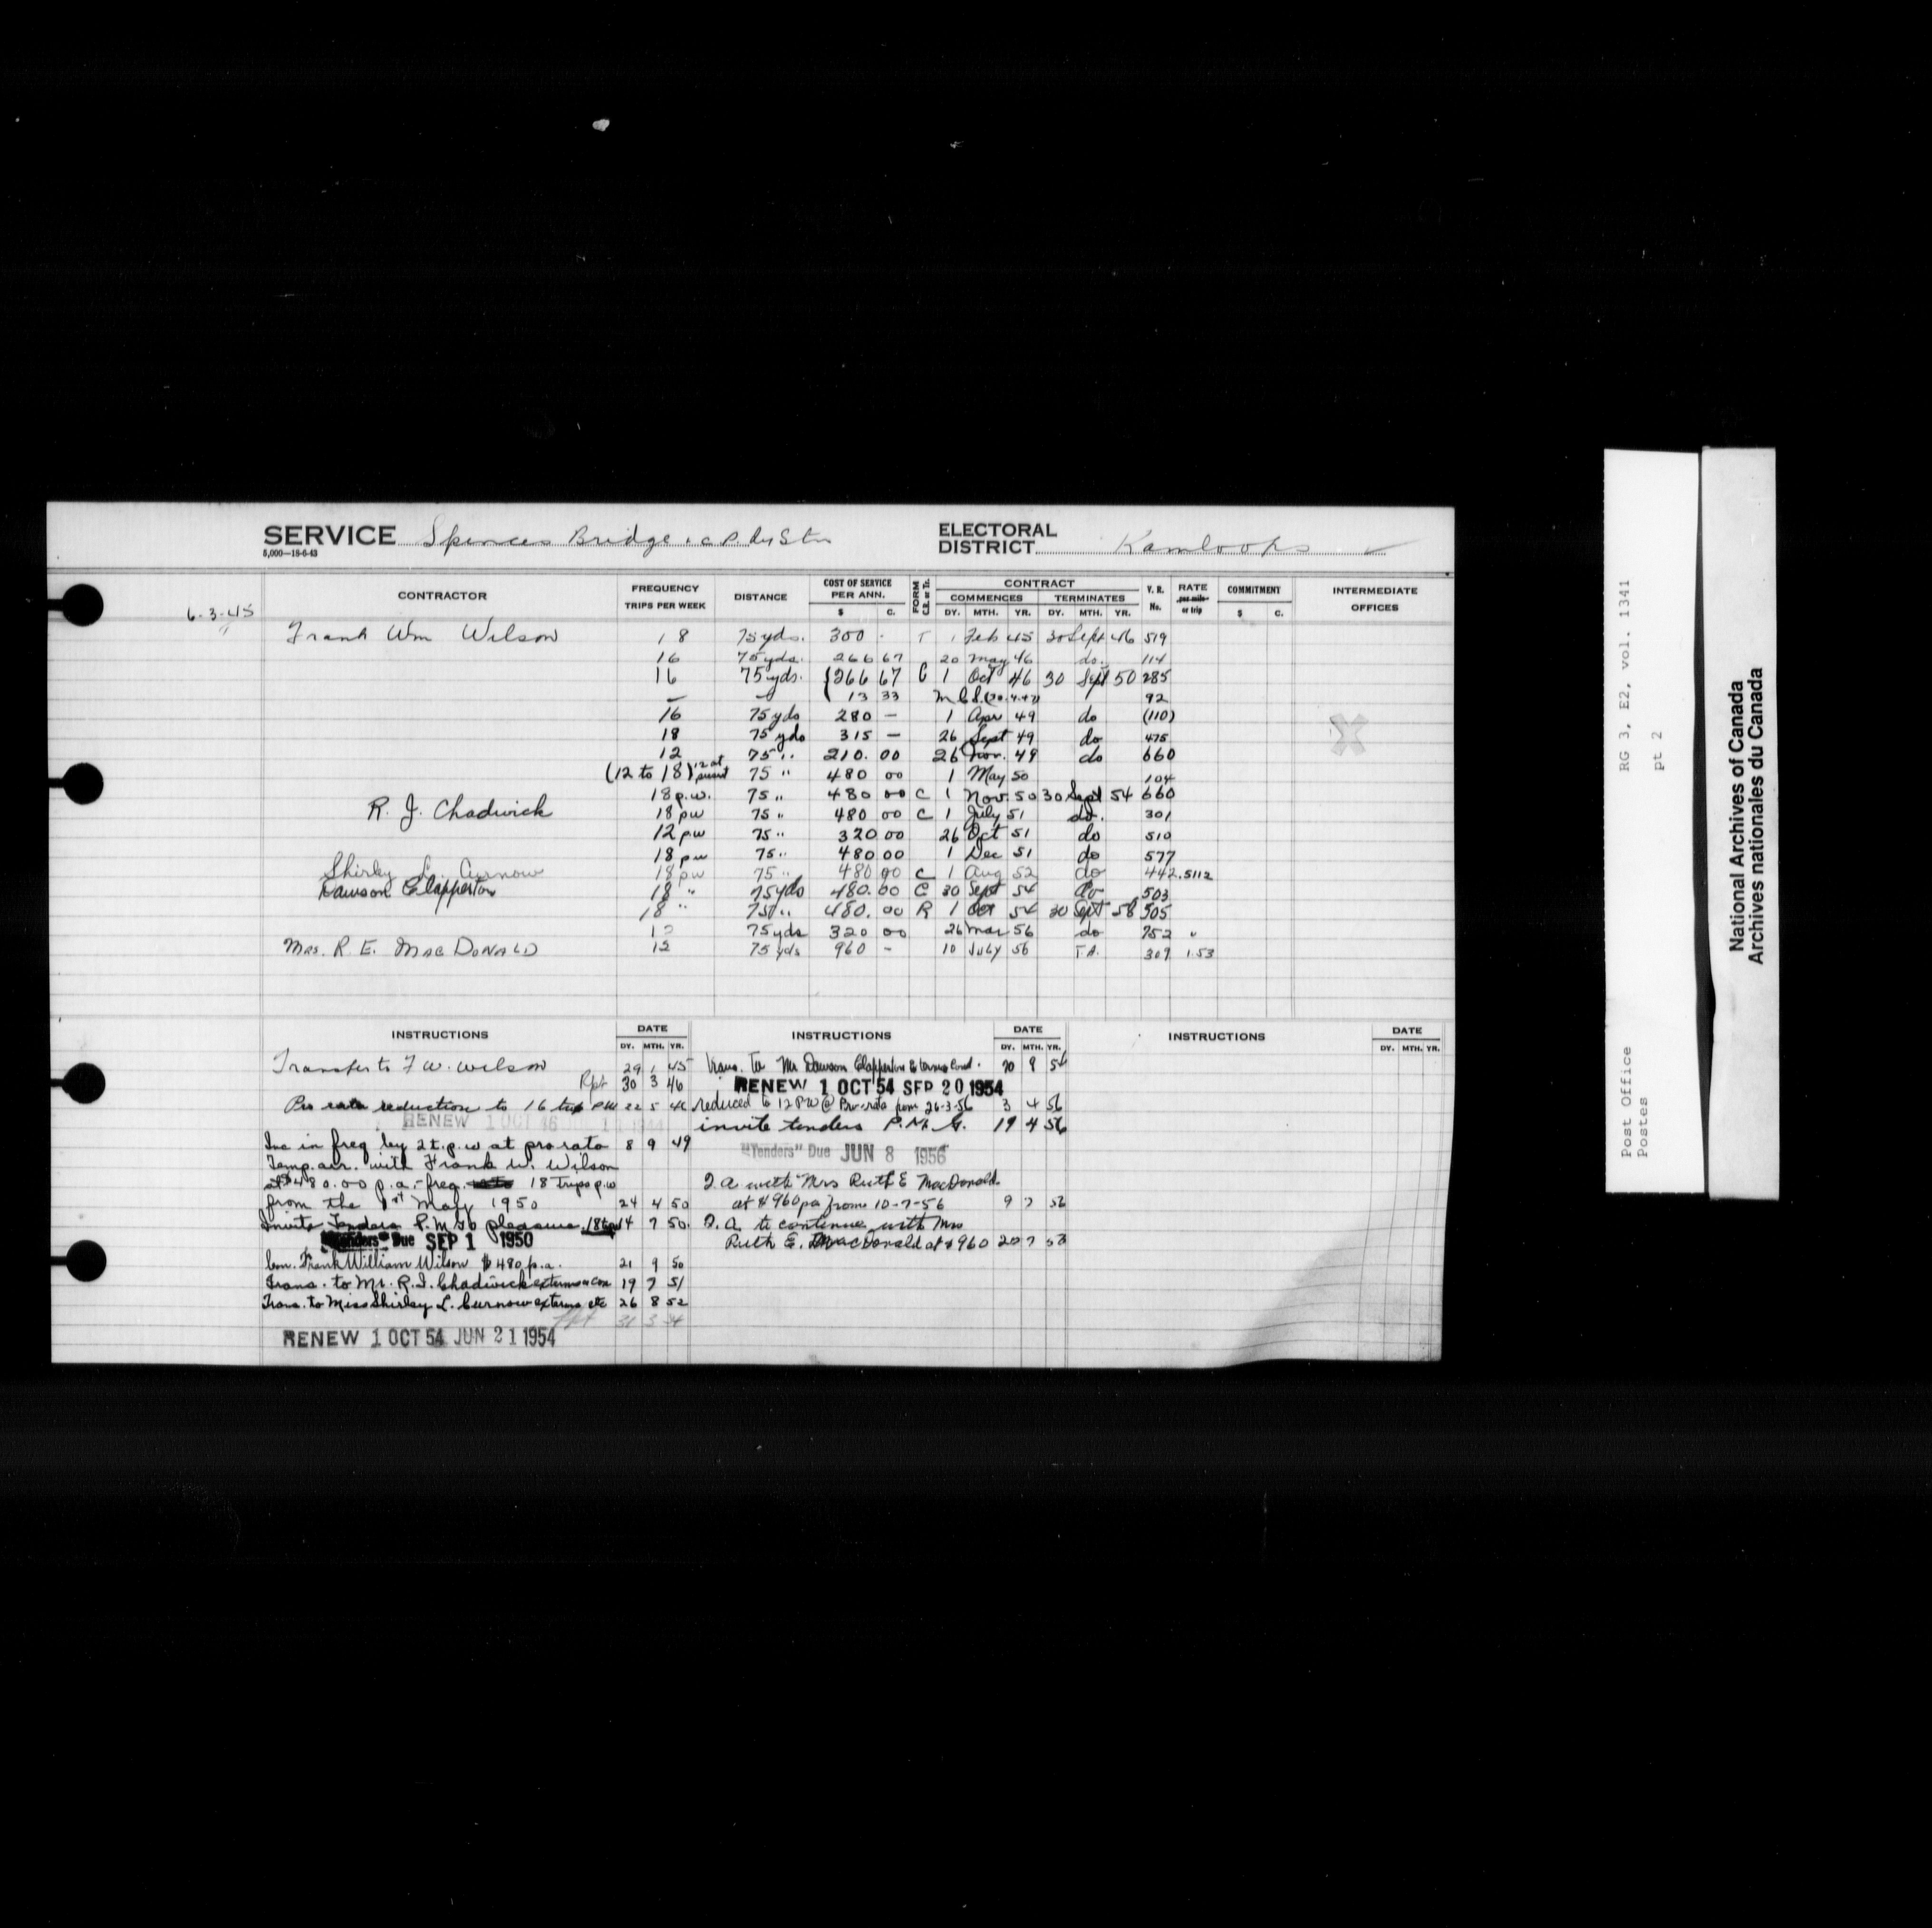 SERVICE Spences Bridge & C.P. Ry Stn
5,000—18-6-43
ELECTORAL DISTRICT Kamloops
CONTRACTOR FREQUENCY TRIPS PER WEEK DISTANCE COST OF SERVICE PER ANN. $ C. FORM CONTRACT COMMENCES DY. MTH. YR. TERMINATES DY. MTH. YR. V. R. No. RATE per mile or trip COMMITMENT $ C. INTERMEDIATE OFFICES
6-3-45
Frank Wm Wilson 18 75 yds. 300 - T 1 Feb 45 30 Sept 46 519
16 75 yds. 266 67 20 May 46 do. 114
16 75 yds. 266 67 C 1 Oct 46 30 Sept 50 285
— 13 33 92
16 75 yds 280 — 1 Apr 49 do (110)
18 75 yds 315 — 26 Sept 49 do 475
12 75 " 210. 00 26 Nov. 49 do 660
(12 to 18) 12 at present 75 " 480 00 1 May 50 104
18 p.w. 75 " 480 00 C 1 Nov. 50 30 Sept 54 660
R. J. Chadwick 18 pw 75 " 480 00 C 1 July 51 do. 301
12 pw 75 " 320 00 26 Oct 51 do 510
18 pw 75 " 480 00 1 Dec 51 do 577
Shirley L. Curnow 18 pw 75 " 480 00 C 1 Aug 52 do 442 .5112
Dawson Clapperton 18 " 75 yds 480. 00 C 30 Sept 54 do 503
18 " 75 " 480. 00 R 1 Oct 54 30 Sept 58 505
12 75 yds 320 00 26 Mar 56 do 752 "
MRS. R. E. MACDONALD 12 75 yds 960 - 10 JULY 56 T.A. 309 1.53
INSTRUCTIONS DATE DY. MTH. YR.
Transfer to F W. Wilson 29 1 45
Rpt 30 3 46
Pro rata reduction to 16 trips PW 22 5 46
RENEW 1 OCT 46
Inc in freq by 2 t.p.w at pro rata 8 9 49
Temp. arr. with Frank W. Wilson
at $480.00 p.a. - freq. 18 Trips p.w
from the 1st May 1950 24 4 50
Invite Tenders P.M.G pleasure 18 tpw 14 7 50.
"Tenders" Due SEP 1 1950
Con. Frank William Wilson $480 p.a. 21 9 50
Trans. to Mr. R. J. Chadwick 19 7 51
Trans. to Miss Shirley L. Curnow ex terms etc 26 8 52
Rpt 31 3 54
RENEW 1 OCT 54 JUN 21 1954
INSTRUCTIONS DATE DY. MTH. YR.
Trans. to Mr Dawson Clapperton 20 9 54
RENEW 1 OCT 54 SEP 20 1954
reduced to 12 PW @ Pro-rata from 26-3-56 3 4 56
invite tenders P.M.G. 19 4 56
"Tenders" Due JUN 8 1956
T. A with Mrs Ruth E MacDonald
at $960 pa from 10-7-56 9 7 56
T. A. to continue with Mrs
Ruth E. MacDonald at $960 20 7 58
INSTRUCTIONS DATE DY. MTH. YR.
RG 3, E2, vol. 1341
pt 2
Post Office
Postes
National Archives of Canada
Archives nationales du Canada